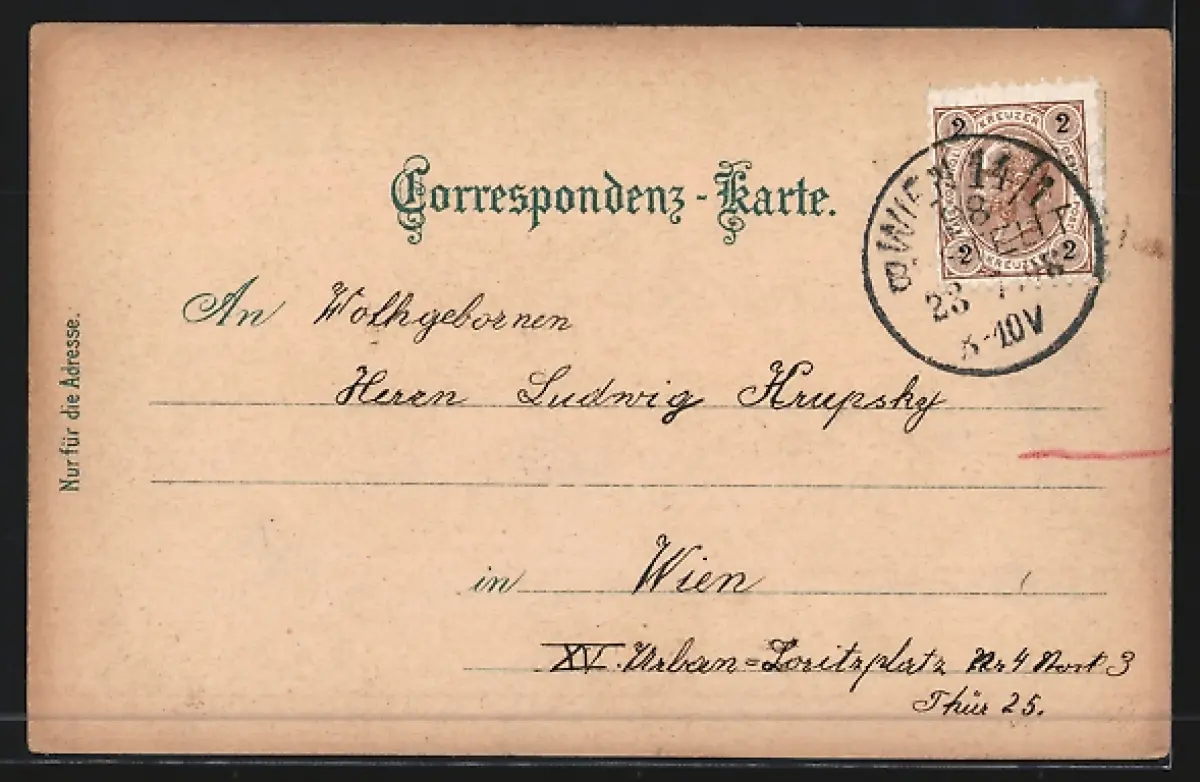 Correspondenz-Karte.
An Wolhgebornen
Herrn Ludwig Krupsky
in Wien
XV. Urban=Loritzplatz Nr 4 3
Thür 25.
Nur für die Adresse.
2 KREUZER 2
2 KREUZER 2
WIEN 14/1
23
-10V